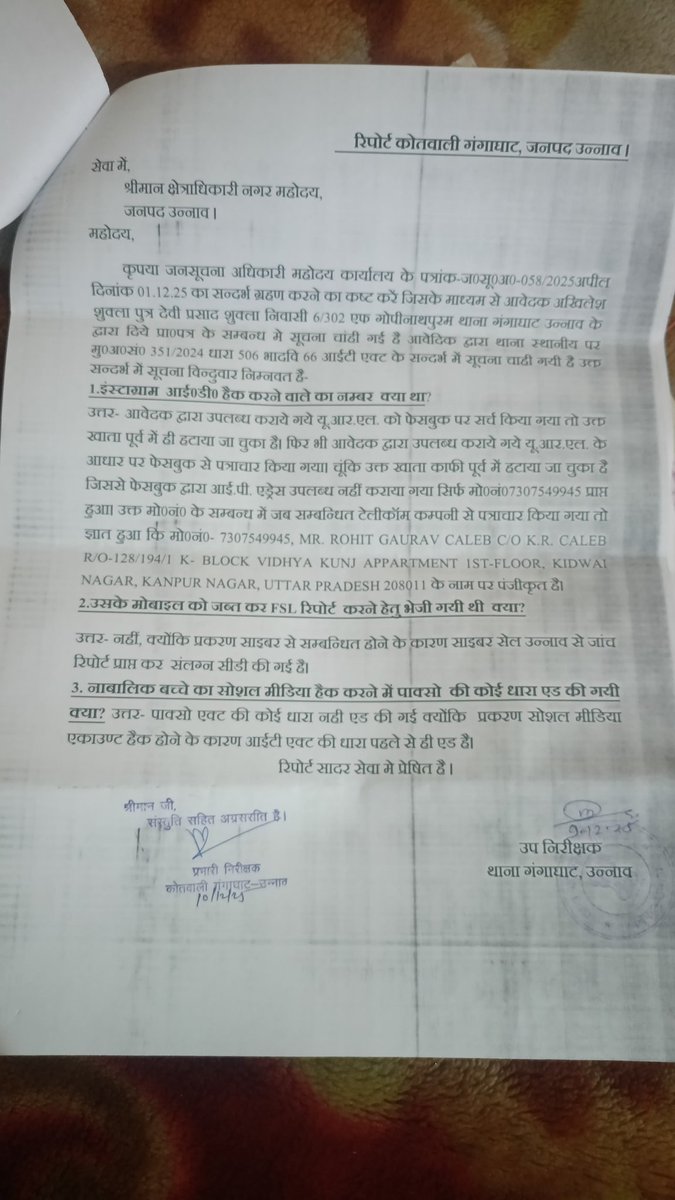 रिपोर्ट कोतवाली गंगाघाट, जनपद उन्नाव।
सेवा में,
श्रीमान क्षेत्राधिकारी नगर महोदय,
जनपद उन्नाव।
महोदय,
कृपया जनसूचना अधिकारी महोदय कार्यालय के पत्रांक-ज0सू0अ0-058/2025अपील
दिनांक 01.12.25 का सन्दर्भ ग्रहण करने का कष्ट करें जिसके माध्यम से आवेदक अखिलेश
शुक्ला पुत्र देवी प्रसाद शुक्ला निवासी 6/302 एफ गोपीनाथपुरम थाना गंगाघाट उन्नाव के
द्वारा दिये प्रा0पत्र के सम्बन्ध मे सूचना चांही गई है आवेदिक द्वारा थाना स्थानीय पर
मु0अ0सं0 351/2024 धारा 506 भादवि 66 आईटी एक्ट के सन्दर्भ में सूचना चाही गयी है उक्त
सन्दर्भ में सूचना विन्दुवार निम्नवत है-
1.इंस्टाग्राम आई0डी0 हैक करने वाले का नम्बर क्या था?
उत्तर- आवेदक द्वारा उपलब्ध कराये गये यू.आर.एल. को फेसबुक पर सर्च किया गया तो उक्त
खाता पूर्व में ही हटाया जा चुका है। फिर भी आवेदक द्वारा उपलब्ध कराये गये यू.आर.एल. के
आधार पर फेसबुक से पत्राचार किया गया। चूंकि उक्त खाता काफी पूर्व में हटाया जा चुका है
जिससे फेसबुक द्वारा आई.पी. एड्रेस उपलब्ध नहीं कराया गया सिर्फ मो0नं07307549945 प्राप्त
हुआ। उक्त मो0नं0 के सम्बन्ध में जब सम्बन्धित टेलीकॉम कम्पनी से पत्राचार किया गया तो
ज्ञात हुआ कि मो0नं0- 7307549945, MR. ROHIT GAURAV CALEB C/O K.R. CALEB
R/O-128/194/1 K- BLOCK VIDHYA KUNJ APPARTMENT 1ST-FLOOR, KIDWAI
NAGAR, KANPUR NAGAR, UTTAR PRADESH 208011 के नाम पर पंजीकृत है।
2.उसके मोबाइल को जब्त कर FSL रिपोर्ट करने हेतु भेजी गयी थी क्या?
उत्तर- नहीं, क्योंकि प्रकरण साइबर से सम्बन्धित होने के कारण साइबर सेल उन्नाव से जांच
रिपोर्ट प्राप्त कर संलग्न सीडी की गई है।
3. नाबालिक बच्चे का सोशल मीडिया हैक करने में पाक्सो की कोई धारा एड की गयी
क्या? उत्तर- पाक्सो एक्ट की कोई धारा नही एड की गई क्योंकि प्रकरण सोशल मीडिया
एकाउण्ट हैक होने के कारण आईटी एक्ट की धारा पहले से ही एड है।
रिपोर्ट सादर सेवा मे प्रेषित है।
श्रीमान जी,
संस्तुति सहित अग्रसारित है।
प्रभारी निरीक्षक
कोतवाली गंगाघाट-उन्नाव
10/12/25
9.12.25
उप निरीक्षक
थाना गंगाघाट, उन्नाव